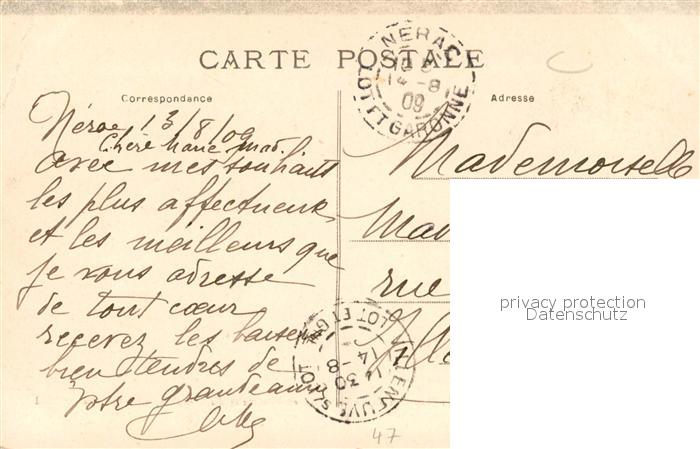 CARTE POSTALE
NERAC
14-8
09
LOT ET GARONNE
Correspondance
Adresse
Nérac 13/8/09
Chère Marie
avec mes souhaits
les plus affectueux
et les meilleurs que
je vous adresse
de tout cœur
recevez les baisers
bien tendres de
votre grande amie
Mademoiselle
rue
privacy protection
Datenschutz
LOT ET G
14-8
30
47